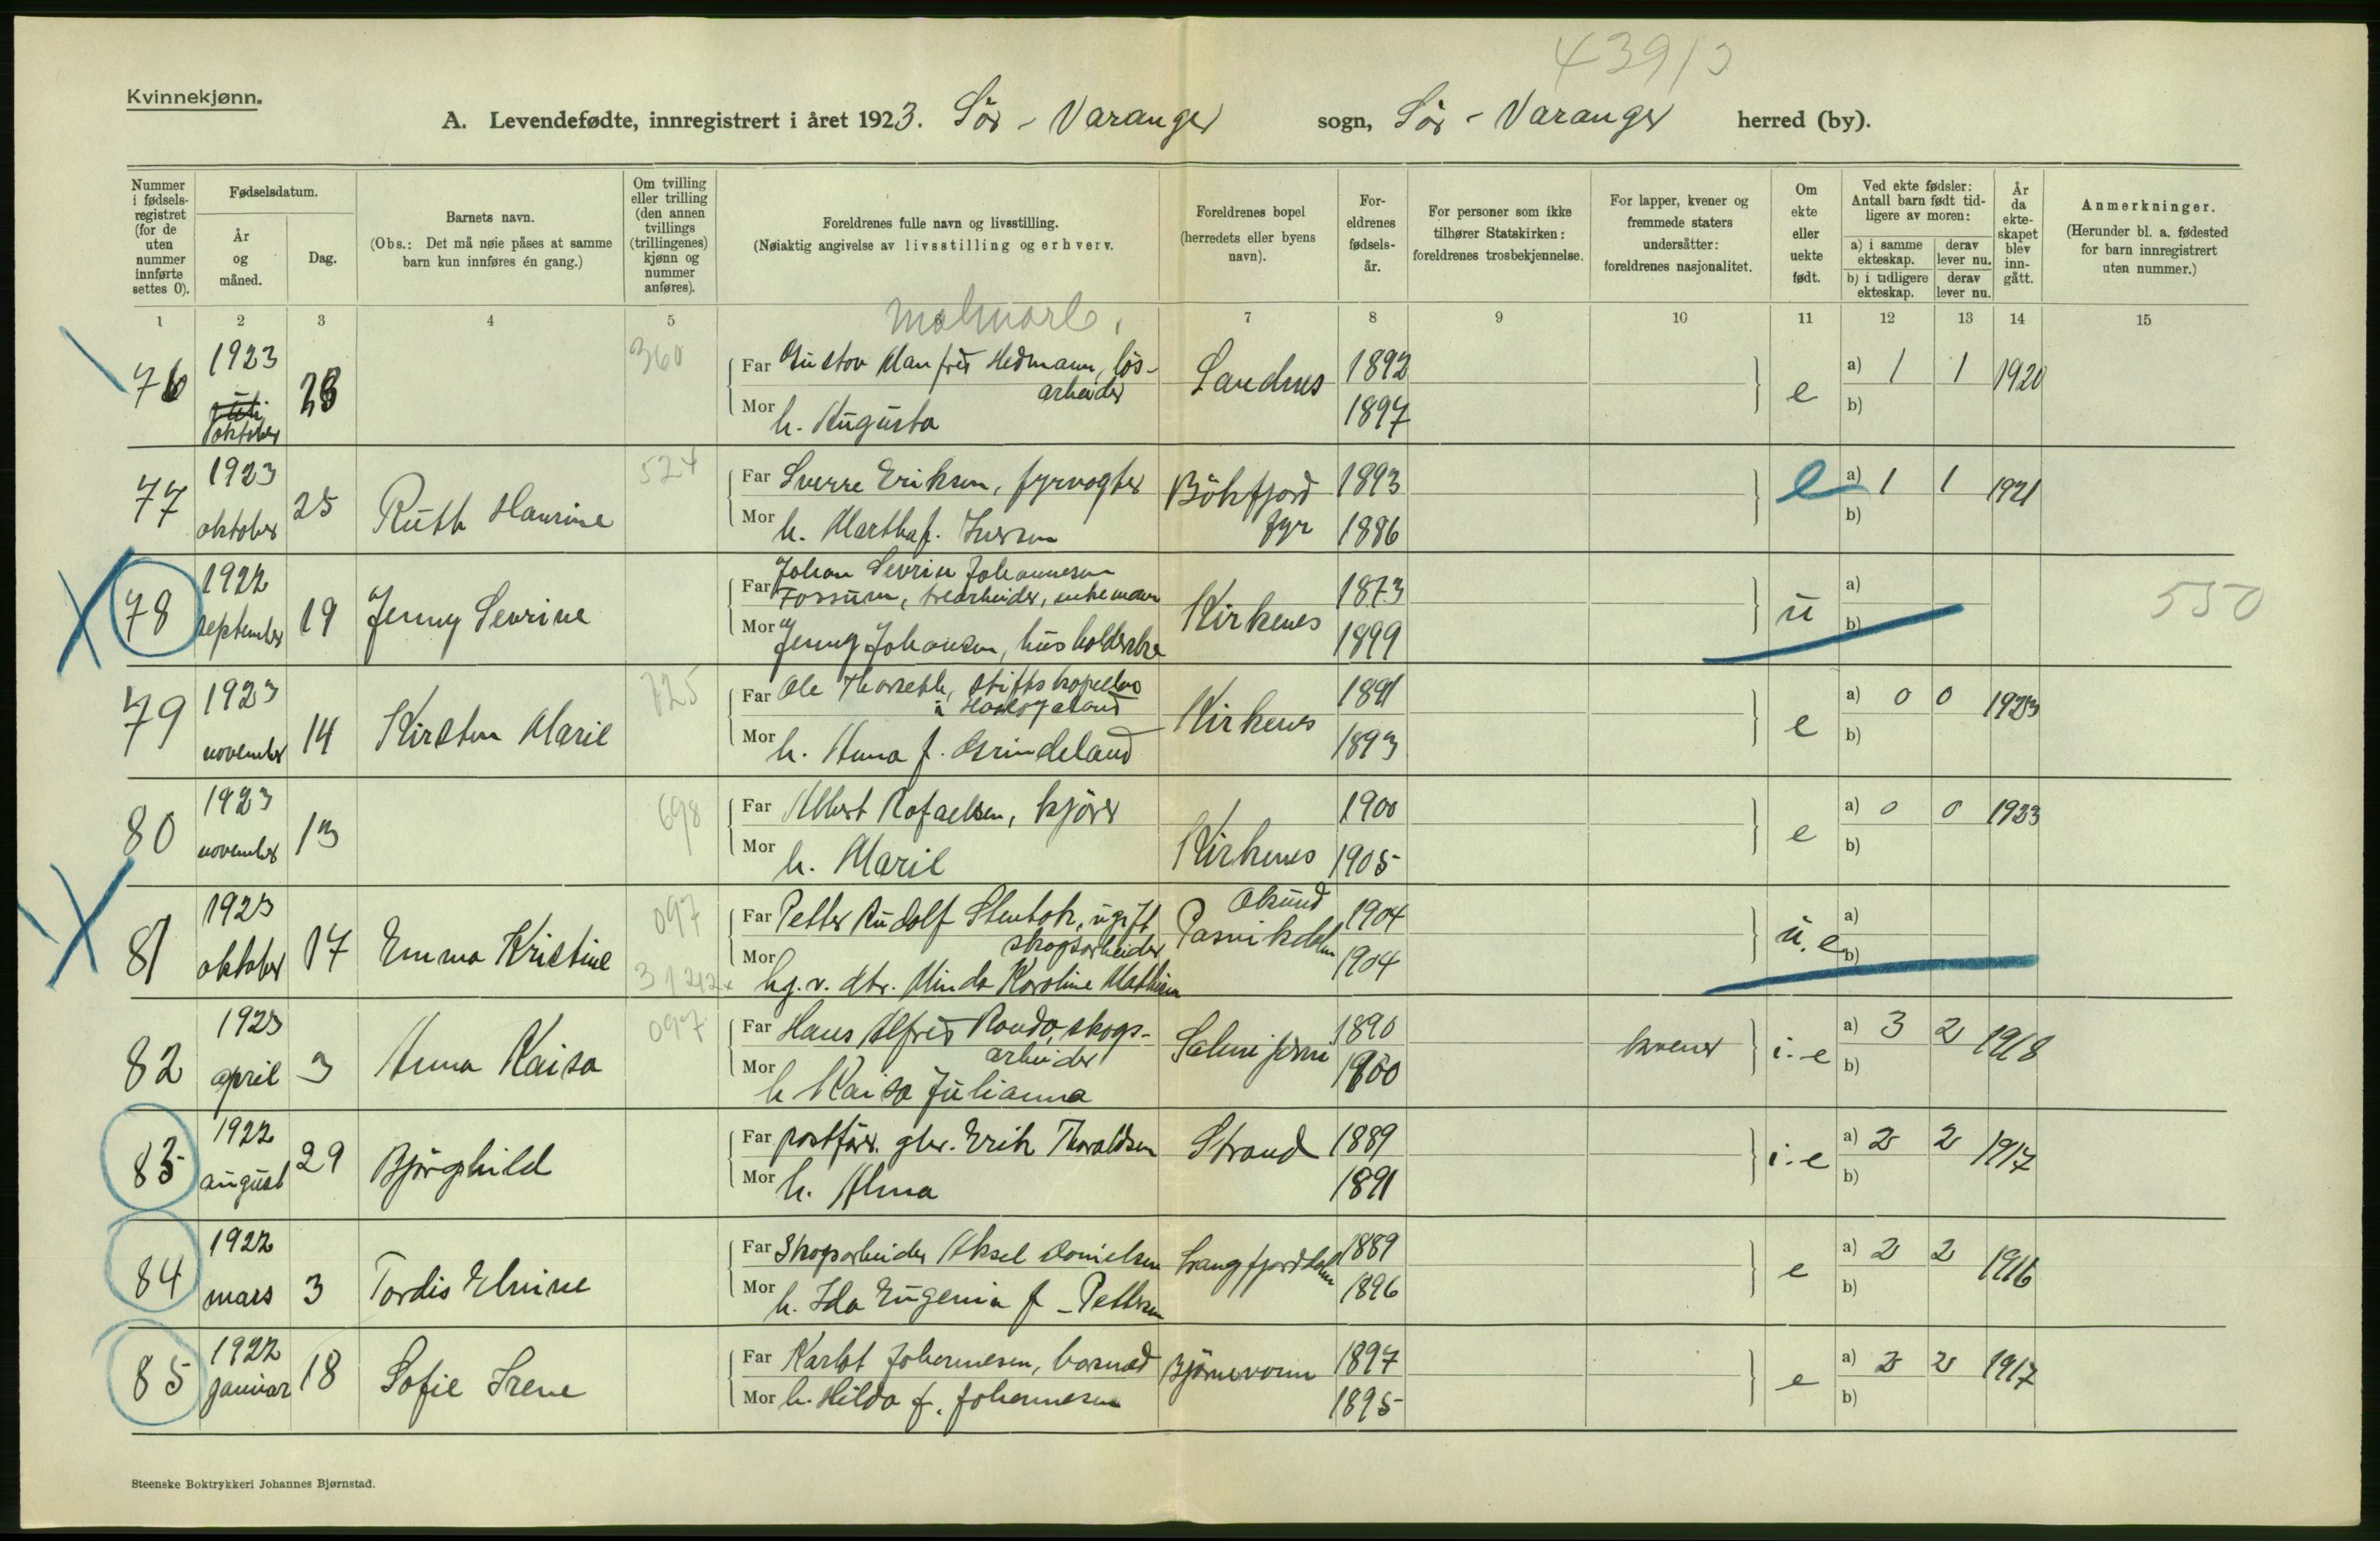 43913
Kvinnekjønn.
A. Levendefødte, innregistrert i året 1923. Sör - Varanger sogn, Sör - Varanger herred (by).
Nummer i fødsels-registret (for de uten nummer innførte settes 0).
Fødselsdatum.
År og måned.
Dag.
Barnets navn.
(Obs.: Det må nøie påses at samme barn kun innføres én gang.)
Om tvilling eller trilling (den annen tvillings (trillingenes) kjønn og nummer anføres).
Foreldrenes fulle navn og livsstilling.
(Nøiaktig angivelse av livsstilling og erhverv.
Foreldrenes bopel (herredets eller byens navn).
For-eldrenes fødsels-år.
For personer som ikke tilhører Statskirken: foreldrenes trosbekjennelse.
For lapper, kvener og fremmede staters undersåtter: foreldrenes nasjonalitet.
Om ekte eller uekte født.
Ved ekte fødsler: Antall barn født tid-ligere av moren:
a) i samme ekteskap.
derav lever nu.
b) i tidligere ekteskap.
derav lever nu.
År da ekte-skapet blev inn-gått.
Anmerkninger.
(Herunder bl. a. fødested for barn innregistrert uten nummer.)
1 2 3 4 5 6 7 8 9 10 11 12 13 14 15
malmarb.
76 1923 oktober 23 360
Far Gustav Manfred Hedmann, lös-arbeider Sandnes 1892 e a) 1 1 1920
Mor h. Augusta 1897 b)
77 1923 oktober 25 Ruth Hansine 524
Far Sverre Eriksen, fyrvogter Bökfjord fyr 1893 e a) 1 1 1921
Mor h. Martha f. Iversen 1886 b)
78 1922 september 19 Jenny Sevrine
Far Johan Sevrin Johannesen Fossum, trearbeider, enkemann Kirkenes 1873 u a) 550
Mor Jenny Johansen, husholderske 1899 b)
79 1923 november 14 Kirsten Marie 725
Far Ole Thorseth, stiftskapellan i Haalogaland Kirkenes 1891 e a) 0 0 1923
Mor h. Anna f. Grindeland 1893 b)
80 1923 november 13 698
Far Albert Rafaelsen, kjörer Kirkenes 1900 e a) 0 0 1923
Mor h. Marie 1905 b)
81 1923 oktober 17 Emma Kristine 097
Far Petter Rudolf Stenbak, ugift skogsarbeider Pasvikdalen 1904 u. e a)
Mor hg. v. dtr. Minda Karoline Mathisen 1904 b)
82 1923 april 3 Anna Kaisa 097
Far Hans Alfred Randa, skogs-arbeider Salmijervi 1890 kvener i. e a) 3 2 1918
Mor h Kaisa Julianna 1900 b)
83 1922 august 29 Bjørghild
Far postför. gbr. Erik Thoraldsen Strand 1889 i. e a) 2 2 1917
Mor h. Alma 1891 b)
84 1922 mars 3 Tordis Elvine
Far Skogsarbeider Aksel Danielsen Langfjorddalen 1889 e a) 2 2 1916
Mor h. Ida Eugenia f - Pettersen 1896 b)
85 1922 januar 18 Sofie Irene
Far Karlot Johannesen, Björnevann 1897 e a) 2 2 1917
Mor h. Hilda f. Johannesen 1895 b)
Steenske Boktrykkeri Johannes Bjørnstad.